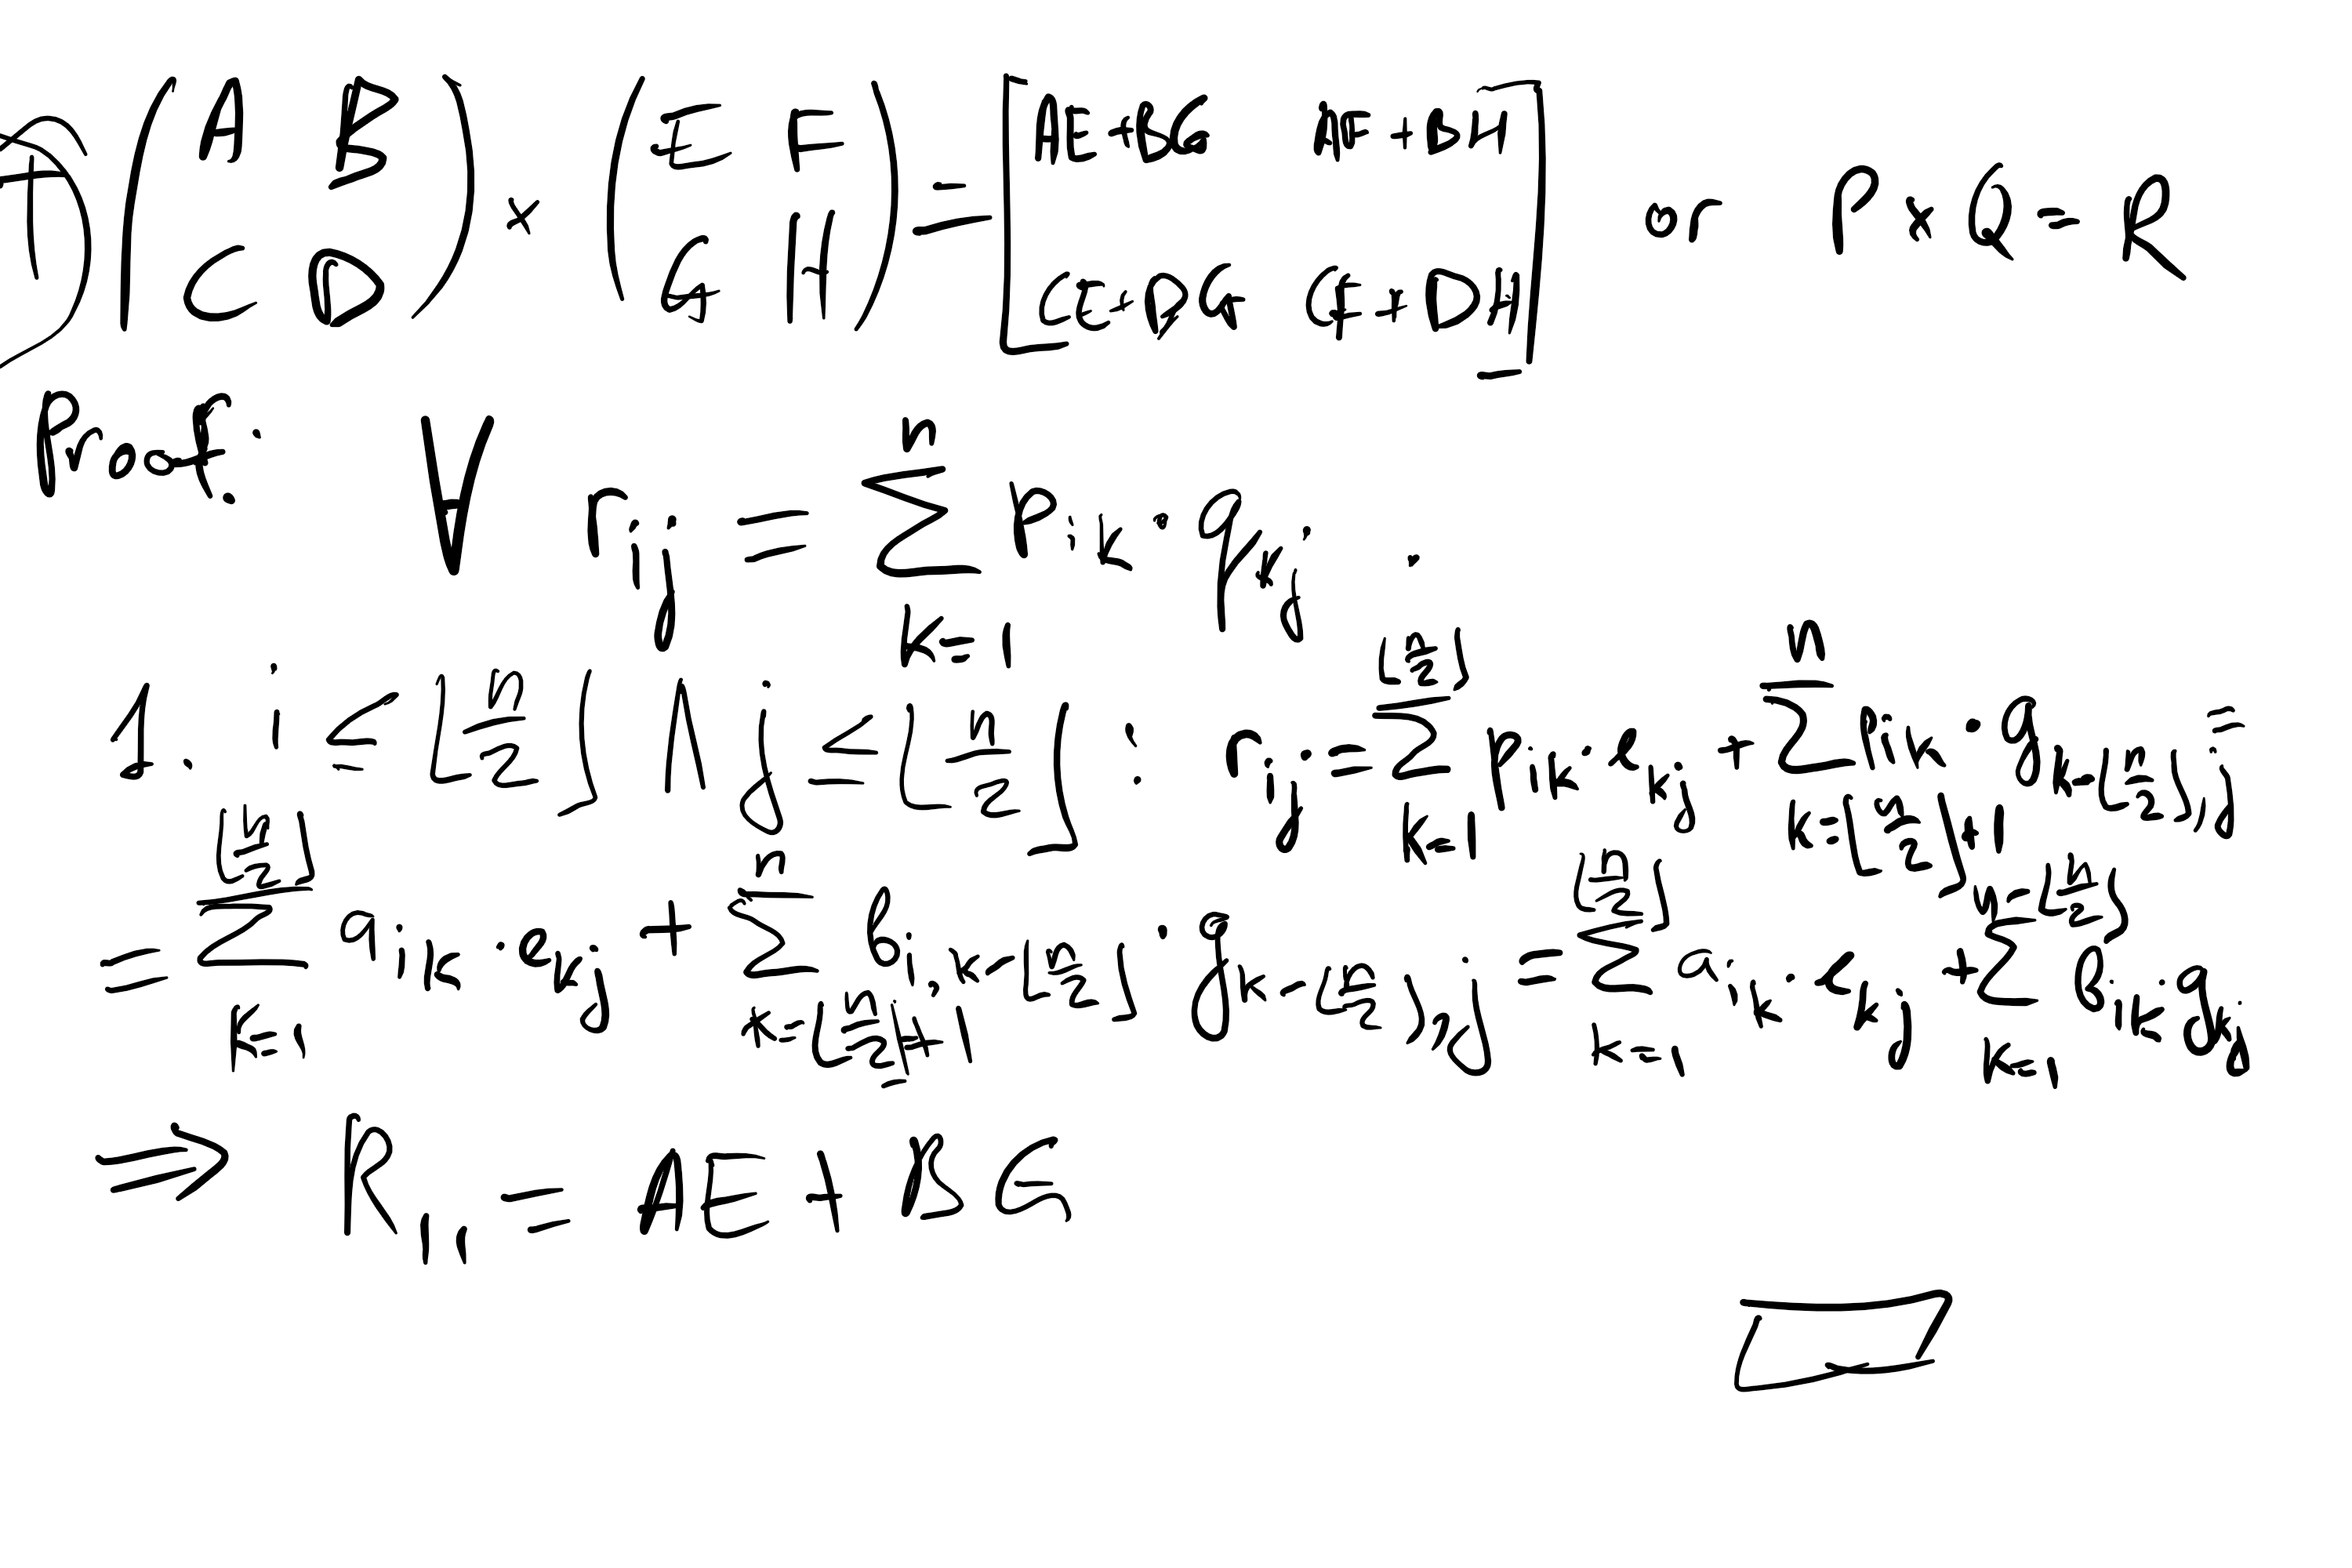 (A B C D) × (E F G H) = [AE + BG AF + BH CE + DG CF + DH] or P × Q = R
Proof:
∀ r_ij = Σ_{k=1}^{n} p_ik · q_kj .
1. i ≤ ⌊n/2⌋ ∧ j ≤ ⌊n/2⌋ : r_ij = Σ_{k=1}^{⌊n/2⌋} p_ik · e_kj + Σ_{k=⌊n/2⌋+1}^{n} p_ik · g_{k-⌊n/2⌋,j} =
= Σ_{k=1}^{⌊n/2⌋} a_ik · e_kj + Σ_{k=⌊n/2⌋+1}^{n} b_{i,k-⌊n/2⌋} · g_{k-⌊n/2⌋,j} = Σ_{k=1}^{⌊n/2⌋} a_ik · e_kj + Σ_{k=1}^{n-⌊n/2⌋} b_ik · g_kj
⇒ R_11 = AE + BG